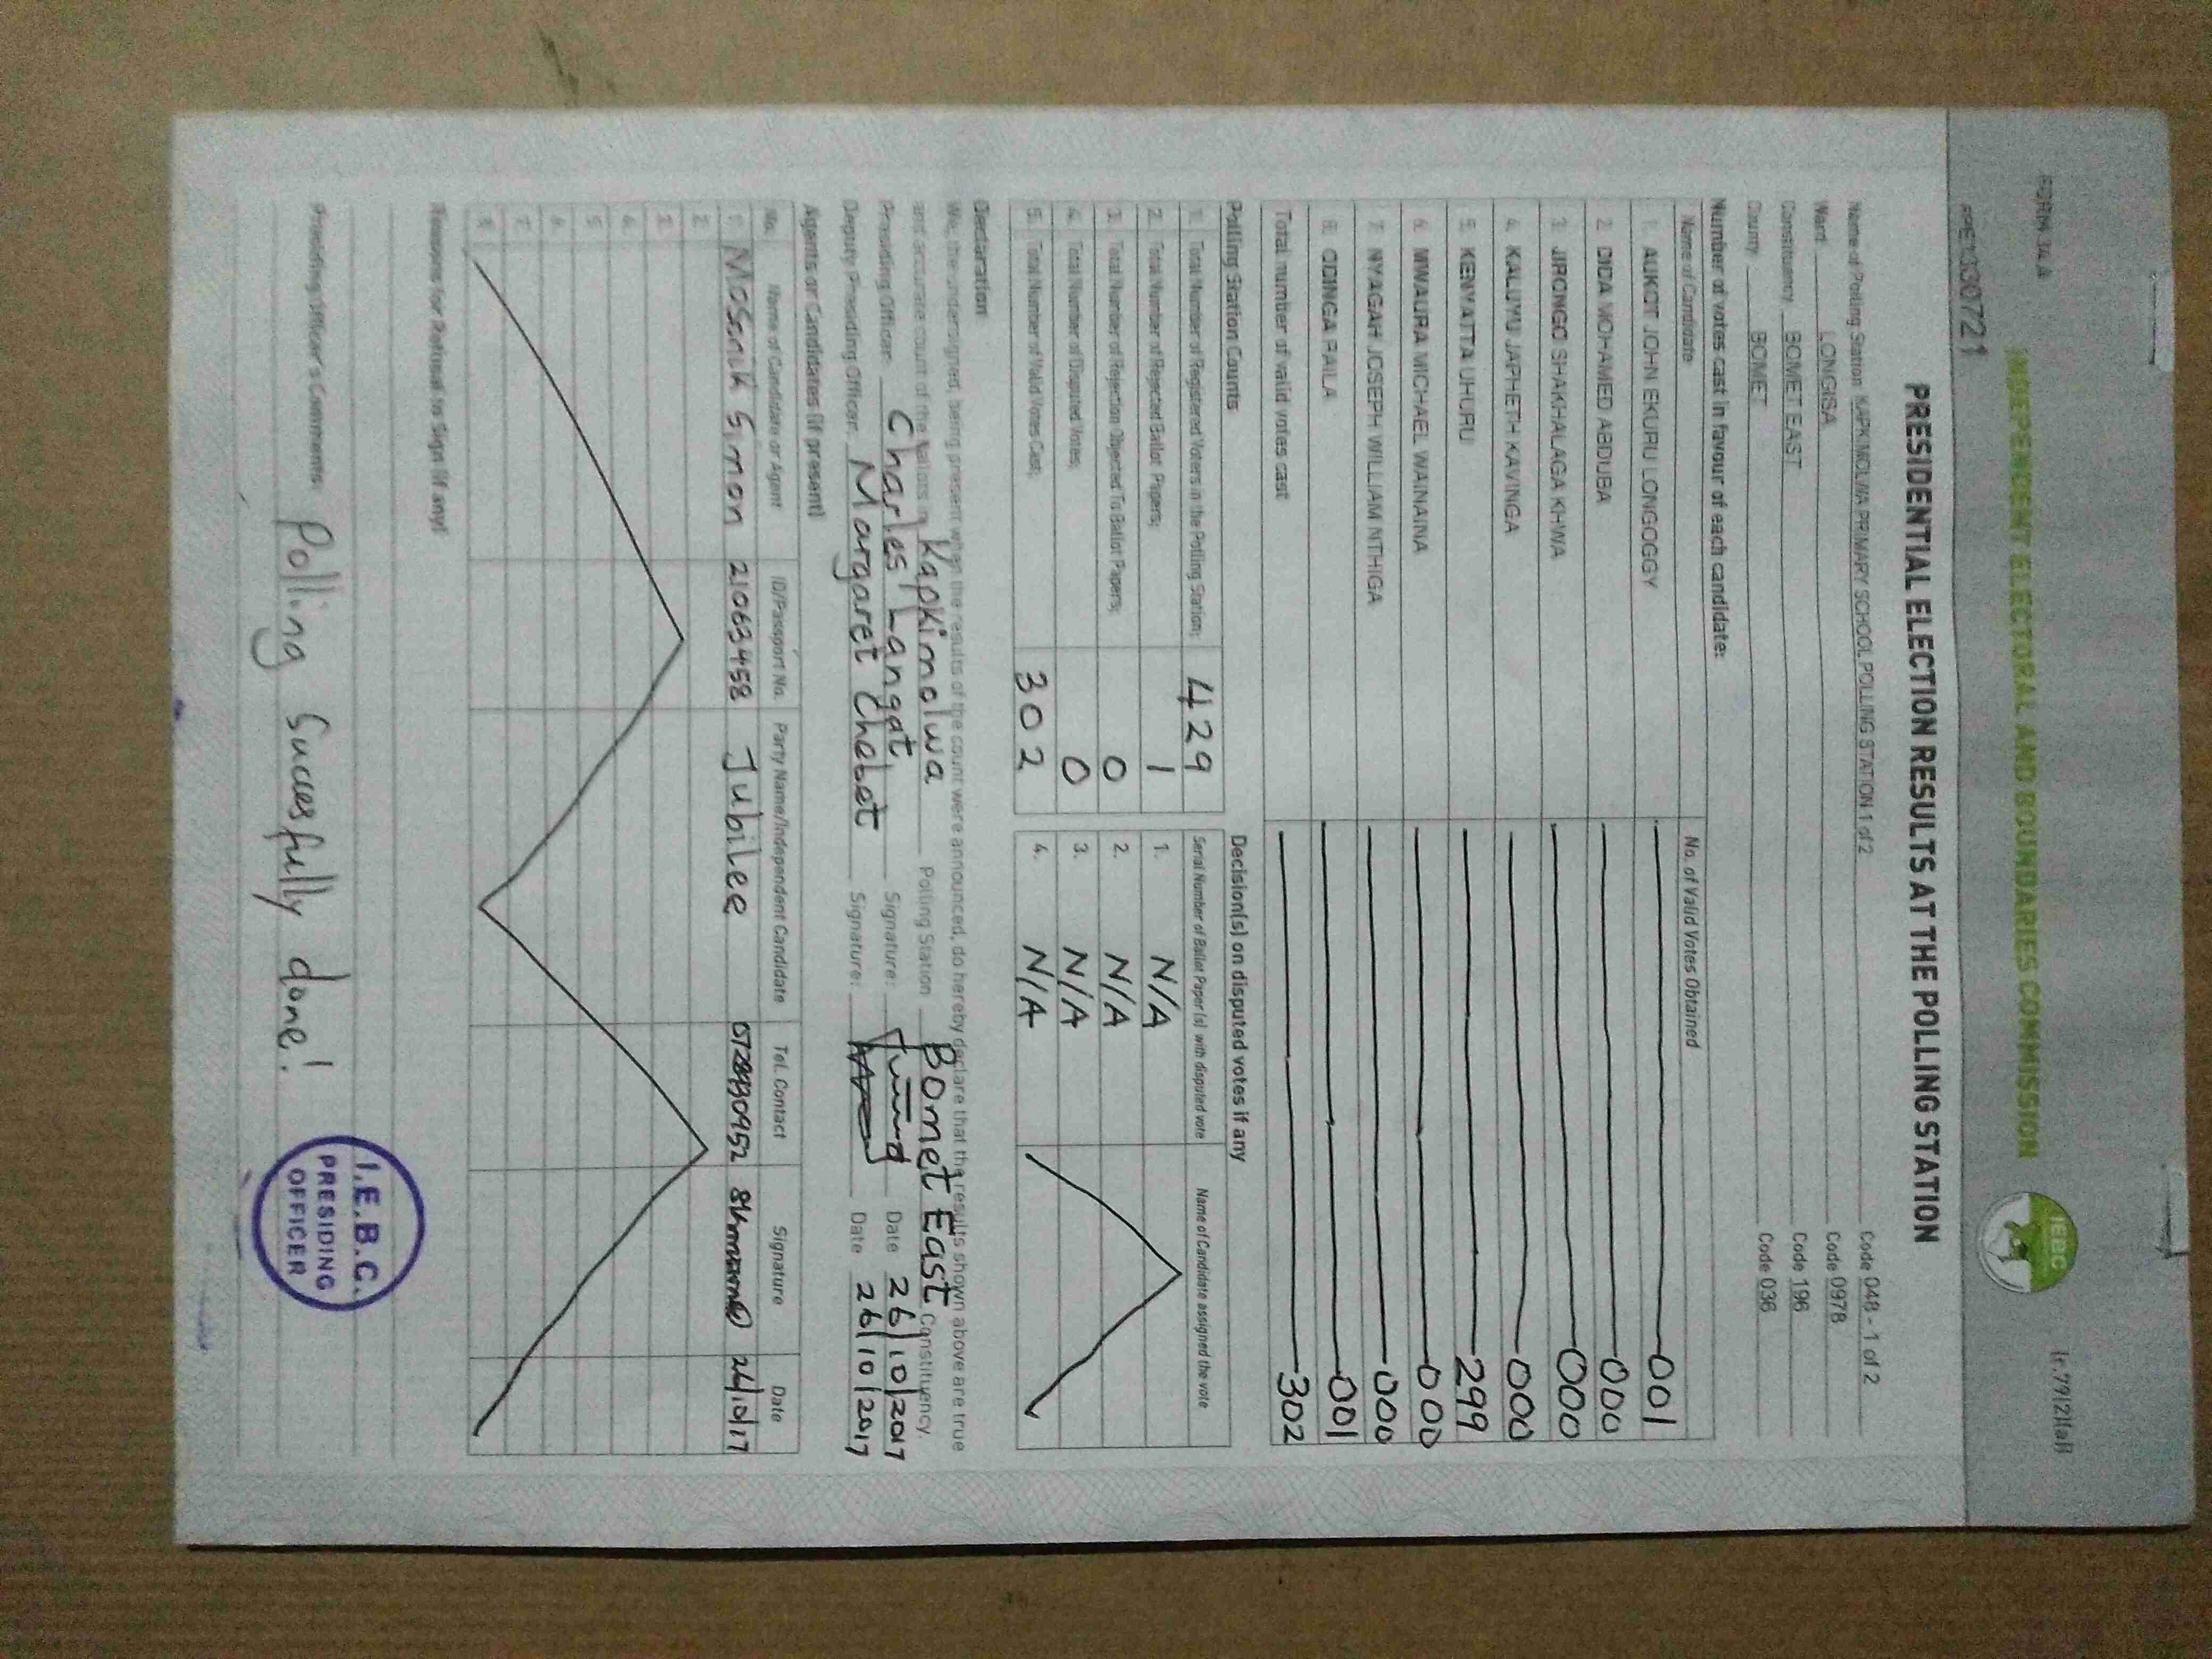 FORM 34 A
(r.79(2)(a))
INDEPENDENT ELECTORAL AND BOUNDARIES COMMISSION
IEBC
PRESIDENTIAL ELECTION RESULTS AT THE POLLING STATION
Name of Polling Station KAPKIMOLWA PRIMARY SCHOOL POLLING STATION 1 of 2 Code 048 - 1 of 2
Ward LONGISA Code 0978
Constituency BOMET EAST Code 196
County BOMET Code 036
Number of votes cast in favour of each candidate:
Name of Candidate No. of Valid Votes Obtained
1. AUKOT JOHN EKURU LONGOGGY 001
2. DIDA MOHAMED ABDUBA 000
3. JIRONGO SHAKHALAGA KHWA 000
4. KALUYU JAPHETH KAVINGA 000
5. KENYATTA UHURU 299
6. MWAURA MICHAEL WAINAINA 000
7. NYAGAH JOSEPH WILLIAM NTHIGA 000
8. ODINGA RAILA 001
Total number of valid votes cast 302
Polling Station Counts
1. Total Number of Registered Voters in the Polling Station; 429
2. Total Number of Rejected Ballot Papers; 1
3. Total Number of Rejection Objected To Ballot Papers; 0
4. Total Number of Disputed Votes; 0
5. Total Number of Valid Votes Cast; 302
Decision(s) on disputed votes if any
Serial Number of Ballot Paper(s) with disputed vote Name of Candidate assigned the vote
1. N/A
2. N/A
3. N/A
4. N/A
Declaration
We, the undersigned, being present when the results of the count were announced, do hereby declare that the results shown above are true
and accurate count of the ballots in Kapkimolwa Polling Station Bomet East Constituency.
Presiding Officer: Charles Langat Signature: Date 26/10/2017
Deputy Presiding Officer: Margaret Chebet Signature: Date 26/10/2017
Agents or Candidates (if present)
No. Name of Candidate or Agent ID/Passport No. Party Name/Independent Candidate Tel. Contact Signature Date
1. Mosonik Simon 21063458 Jubilee 26/10/17
2.
3.
4.
5.
6.
7.
8.
Reasons for Refusal to Sign (if any)
Presiding Officer's Comments: Polling Sucesfully done!
I.E.B.C.
PRESIDING
OFFICER